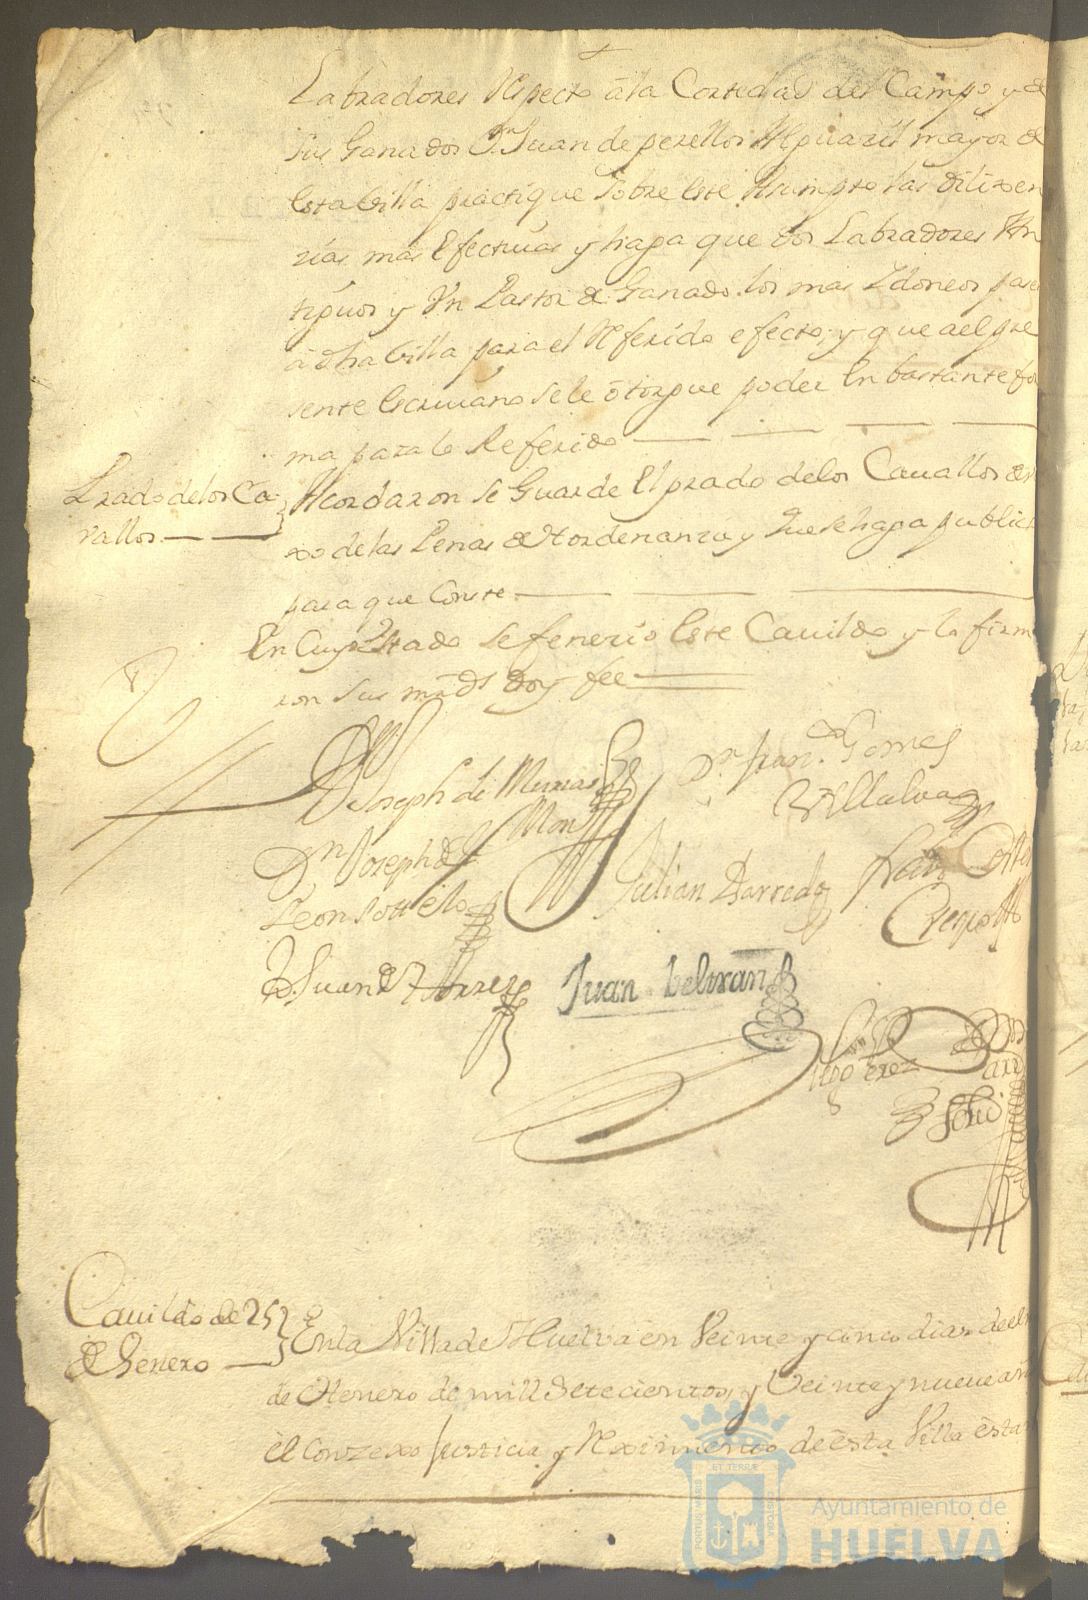 Labradores Respecto â la Cortedad del Campo y de
sus Ganados Dn. Juan de perellos Alguazil mayor de
esta Villa practique sobre este Asumpto las dilixen
zias mas Efectivas y haga que dos Labradores An
tiguos y Un Pastor de Ganado los mas Ydoneos pase
â dha Villa para el Referido efecto; y que a el pre
sente Escrivano se le ôtorgue poder En bastante for
ma para lo Referido
Prado de los Ca
vallos
Acordaron se Guarde El prado de los Cauallos de
xo de las Penas de Hordenanza y que se haga public
para que Conste
En Cuyo Estado se fenezio Este Cauildo y lo firm
ron sus mrds doy fee
Joseph de
Dn. Fran.co Gomes
Villalva
Dn Joseph de
Leon Sotelo
Julian Barreda
Crespo
D. Juan de Torres
Juan Beltran
Perez
Cauildo de 25
de Henero
En la Villa de Huelva en Veinte y cinco dias del m
de Henero de mill Setecientos, y Veinte y nueve añ
el Conzexo Justicia, y Reximiento de esta Villa esta
PORTUS MARIS
ET TERRÆ
CUSTODIA
Ayuntamiento de
HUELVA